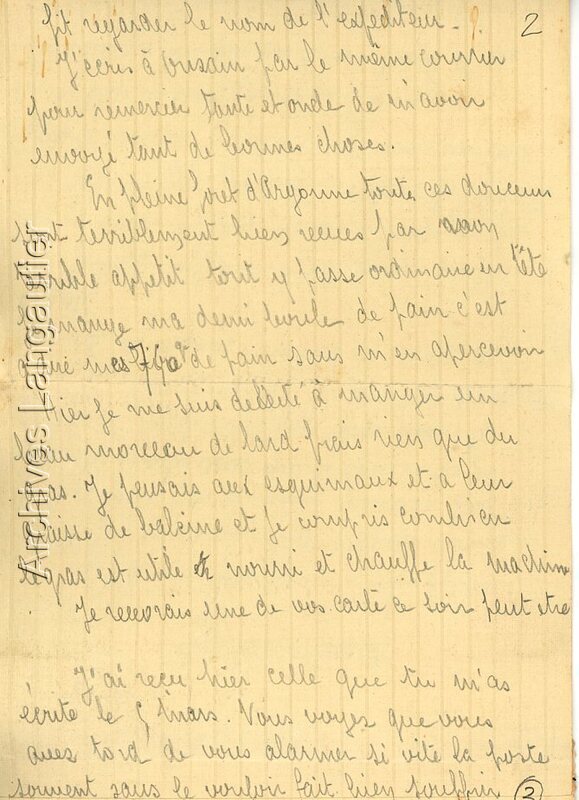 2
fit regarder le nom de l'expediteur.
J'écris à Ousain par le même courrier
pour remercier tante et oncle de m'avoir
envoyé tant de bonnes choses.
En pleine foret d'Argonne toute ces douceurs
sont terriblement bien recues par mon
terrible appetit tout y passe ordinairement
je mange ma demi boule de pain c'est
a dire mes de pain sans m'en apercevoir
Hier je me suis delecté à manger un
beau morceau de lard frais rien que du
gras. Je pensais aux esquimaux et a leur
graisse de baleine et je compris combien
le gras est utile nourri et chauffe la machine
Je recevrais une de vos carte ce soir peut etre
J'ai recu hier celle que tu m'as
écrite le 5 mars. Vous voyez que vous
avez tord de vous alarmer si vite la poste
souvent sans le vouloir fait bien souffrir
2
Archives Langautier